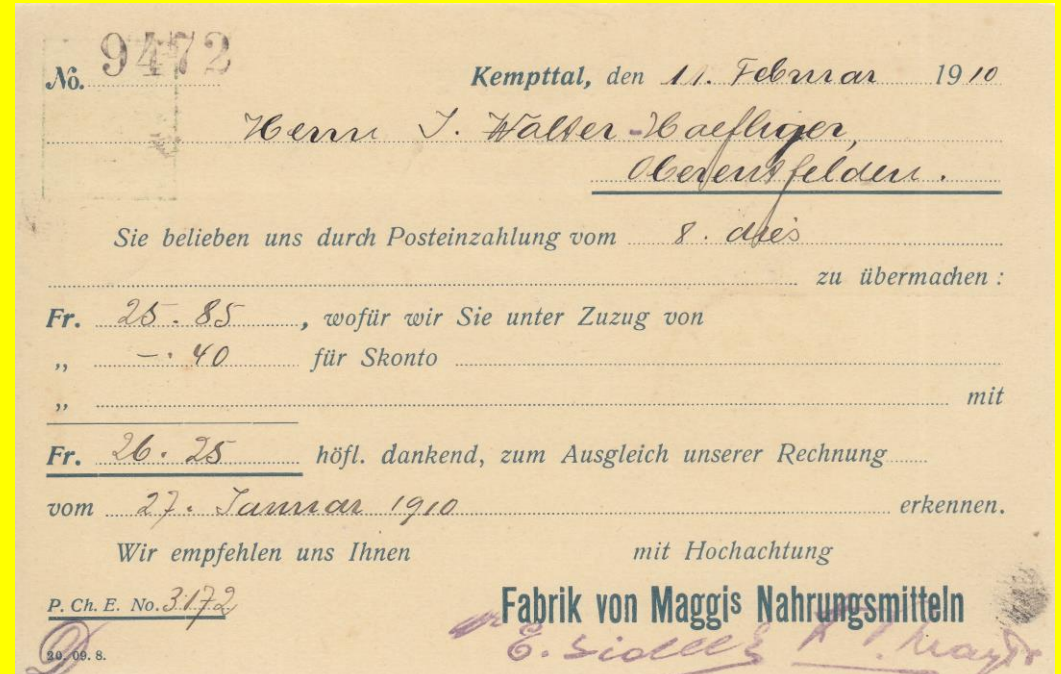 No. 9472
Kempttal, den 11. Februar 1910
Herrn J. Walter-Haefliger,
Oberentfelden.
Sie belieben uns durch Posteinzahlung vom 8. dies
zu übermachen:
Fr. 25.85, wofür wir Sie unter Zuzug von
„ —.40 für Skonto
„ mit
Fr. 26.25 höfl. dankend, zum Ausgleich unserer Rechnung
vom 27. Januar 1910 erkennen.
Wir empfehlen uns Ihnen mit Hochachtung
P. Ch. E. No. 3172 Fabrik von Maggis Nahrungsmitteln
20. 09. 8.